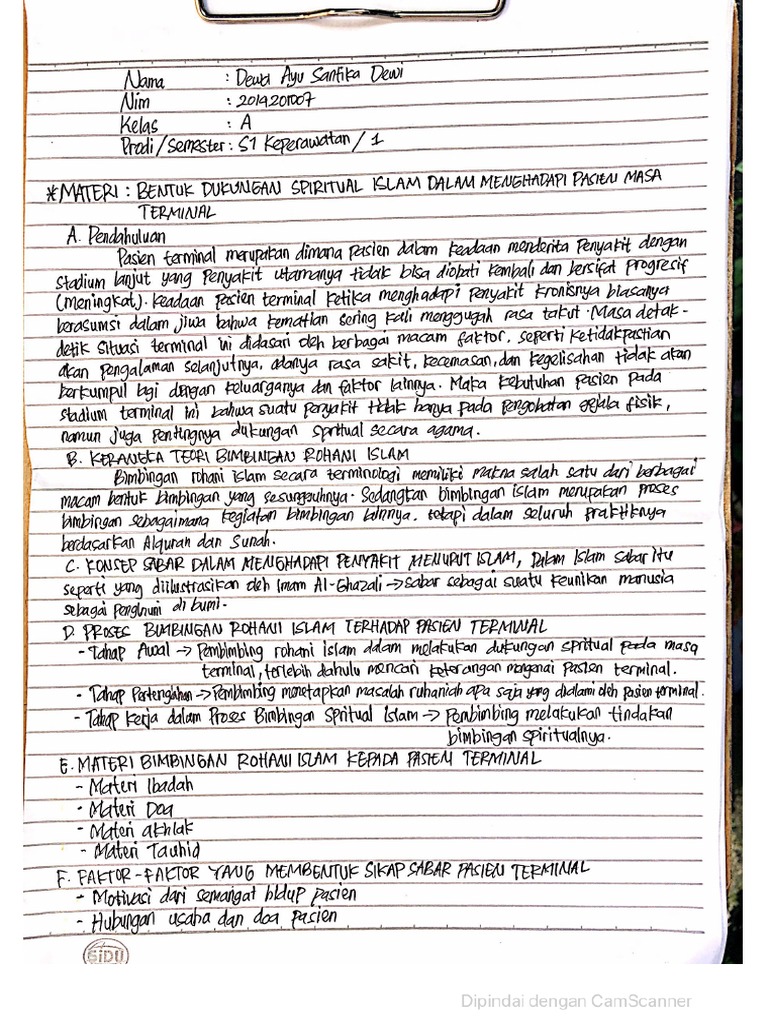 Nama : Dewa Ayu Santika Dewi
Nim : 2019201007
Kelas : A
Prodi/Semester : S1 Keperawatan / 1
*MATERI : BENTUK DUKUNGAN SPIRITUAL ISLAM DALAM MENGHADAPI PASIEN MASA
TERMINAL
A. Pendahuluan
Pasien terminal merupakan dimana pasien dalam keadaan menderita penyakit dengan
stadium lanjut yang penyakit utamanya tidak bisa diobati kembali dan bersifat progresif
(meningkat). Keadaan pasien terminal ketika menghadapi penyakit kronisnya biasanya
berasumsi dalam jiwa bahwa kematian sering kali menggugah rasa takut. Masa detak-
detik situasi terminal ini didasari oleh berbagai macam faktor, seperti ketidakpastian
akan pengalaman selanjutnya, adanya rasa sakit, kecemasan, dan kegelisahan tidak akan
berkumpul lagi dengan keluarganya dan faktor lainnya. Maka kebutuhan pasien pada
stadium terminal ini bahwa suatu penyakit tidak hanya pada pengobatan gejala fisik,
namun juga pentingnya dukungan spritual secara agama.
B. KERANGKA TEORI BIMBINGAN ROHANI ISLAM
Bimbingan rohani islam secara terminologi memiliki makna salah satu dari berbagai
macam bentuk bimbingan yang sesungguhnya. Sedangkan bimbingan islam merupakan proses
bimbingan sebagaimana kegiatan bimbingan lainnya, tetapi dalam seluruh praktiknya
berdasarkan Alquran dan Sunah.
C. KONSEP SABAR DALAM MENGHADAPI PENYAKIT MENURUT ISLAM, Dalam Islam sabar itu
seperti yang diilustrasikan oleh Imam Al-Ghazali → sabar sebagai suatu keunikan manusia
sebagai penghuni di bumi.
D. PROSES BIMBINGAN ROHANI ISLAM TERHADAP PASIEN TERMINAL
- Tahap Awal → Pembimbing rohani islam dalam melakukan dukungan spritual pada masa
terminal, terlebih dahulu mencari keterangan mengenai pasien terminal.
- Tahap Pertengahan → Pembimbing menetapkan masalah ruhaniah apa saja yang dialami oleh pasien terminal.
- Tahap Kerja dalam Proses Bimbingan Spritual Islam → Pembimbing melakukan tindakan
bimbingan spiritualnya.
E. MATERI BIMBINGAN ROHANI ISLAM KEPADA PASIEN TERMINAL
- Materi Ibadah
- Materi Doa
- Materi akhlak
- Materi Tauhid
F. FAKTOR-FAKTOR YANG MEMBENTUK SIKAP SABAR PASIEN TERMINAL
- Motivasi dari semangat hidup pasien
- Hubungan usaha dan doa pasien
SIDU
Dipindai dengan CamScanner